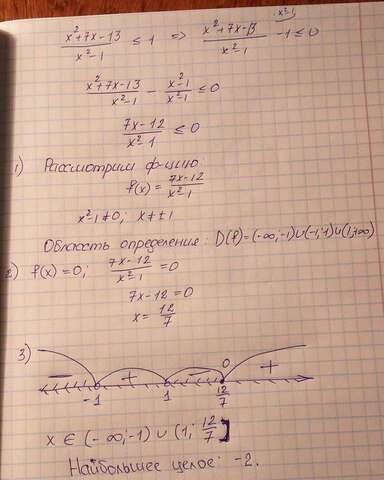 (x²+7x-13)/(x²-1) ≤ 1 => (x²+7x-13)/(x²-1) - 1 ≤ 0
x²-1
(x²+7x-13)/(x²-1) - (x²-1)/(x²-1) ≤ 0
(7x-12)/(x²-1) ≤ 0
1) Рассмотрим ф-цию
f(x) = (7x-12)/(x²-1)
x²-1≠0; x≠±1
Область определения: D(f)=(-∞;-1)∪(-1;1)∪(1;+∞)
2) f(x)=0; (7x-12)/(x²-1) = 0
7x-12=0
x = 12/7
3)
- + - 0 +
-1 1 12/7
x ∈ (-∞;-1) ∪ (1; 12/7]
Наибольшее целое: -2.